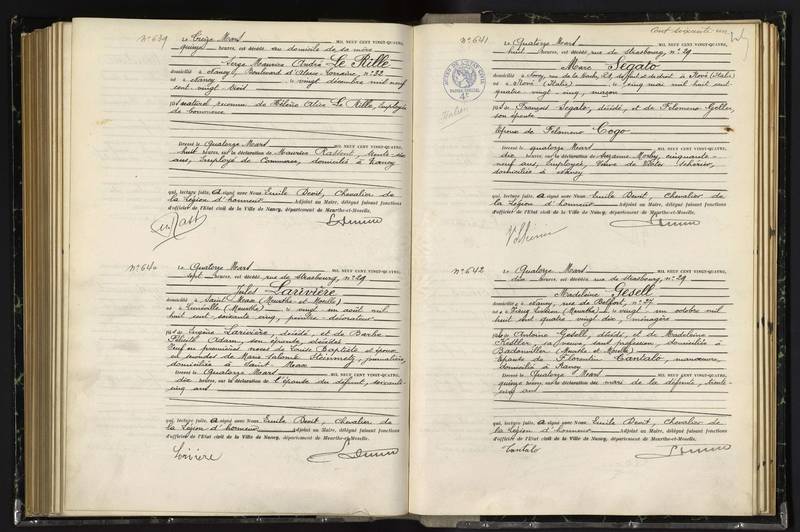 N° 639
Le Treize Mars MIL NEUF CENT VINGT-QUATRE,
quinze heures, est décédé au domicile de sa mère
Serge Maurice André Le Rille
domicilié à Nancy, Boulevard d'Alsace-Lorraine, n° 32
né à Nancy le vingt décembre mil neuf
cent vingt trois
fils naturel reconnu de Hélène Alice Le Rille, employée
de commerce
Dressé le Quatorze Mars MIL NEUF CENT VINGT-QUATRE,
huit heures, sur la déclaration de Maurice trente
ans, Employé de Commerce, domicilié à Nancy
qui, lecture faite, a signé avec Nous Emile Benit, Chevalier de
la Légion d'honneur Adjoint au Maire, délégué faisant fonctions
d'officier de l'Etat civil de la Ville de Nancy, département de Meurthe-et-Moselle.
N° 640
Le Quatorze Mars MIL NEUF CENT VINGT-QUATRE,
sept heures, est décédé rue de Strasbourg, n° 29
Jules Larivière
domicilié à Saint Max (Meurthe et Moselle)
né à Lunéville (Meurthe) le vingt un août mil
huit cent soixante cinq, peintre décorateur
fils de Eugène Larivière, décédé, et de Barbe
Félicité Adam, son épouse, décédée
Veuf en premières noces de Louise Baptiste et époux
en secondes de Marie Salomé Steinmetz, journalière
domiciliée à Saint Max
Dressé le Quatorze Mars MIL NEUF CENT VINGT-QUATRE,
dix heures, sur la déclaration de l'épouse du défunt, soixante-
cinq ans
qui, lecture faite, a signé avec Nous Emile Benit, Chevalier de
la Légion d'honneur Adjoint au Maire, délégué faisant fonctions
d'officier de l'Etat civil de la Ville de Nancy, département de Meurthe-et-Moselle.
Cent soixante-un
N° 641
Le Quatorze Mars MIL NEUF CENT VINGT-QUATRE,
huit heures, est décédé rue de Strasbourg, n° 29
Marc Segato
domicilié à rue de la 29, de fait et de droit à Rové (Italie)
né à Rové (Italie) le cinq mai mil huit cent
quatre vingt cinq, maçon
fils de François Segato, décédé, et de Filomena
son épouse
Epoux de Filomena Cogo
Italien
Dressé le quatorze Mars MIL NEUF CENT VINGT-QUATRE,
dix heures, sur la déclaration de Suzanne cinquante-
neuf ans, Employée, Veuve de
domiciliée à Nancy
qui, lecture faite, a signé avec Nous Emile Benit, Chevalier de
la Légion d'honneur Adjoint au Maire, délégué faisant fonctions
d'officier de l'Etat civil de la Ville de Nancy, département de Meurthe-et-Moselle.
N° 642
Le Quatorze Mars MIL NEUF CENT VINGT-QUATRE,
dix heures, est décédée rue de Strasbourg, n° 29
Madeleine Gesell
domiciliée à Nancy, rue de Belfort, n° 27
née à (Meurthe) le vingt un octobre mil
huit cent quatre vingt dix, ménagère
fille de Antoine Gesell, décédé, et de Madeleine
sa veuve, sans profession, domiciliée à
Badonviller (Meurthe et Moselle)
Epouse de Florentin Cantalo, manœuvre,
domicilié à Nancy
Dressé le Quatorze Mars MIL NEUF CENT VINGT-QUATRE,
quinze heures, sur la déclaration du mari de la défunte, trente-
cinq ans
qui, lecture faite, a signé avec Nous Emile Benit, Chevalier de
la Légion d'honneur Adjoint au Maire, délégué faisant fonctions
d'officier de l'Etat civil de la Ville de Nancy, département de Meurthe-et-Moselle.
Cantalo